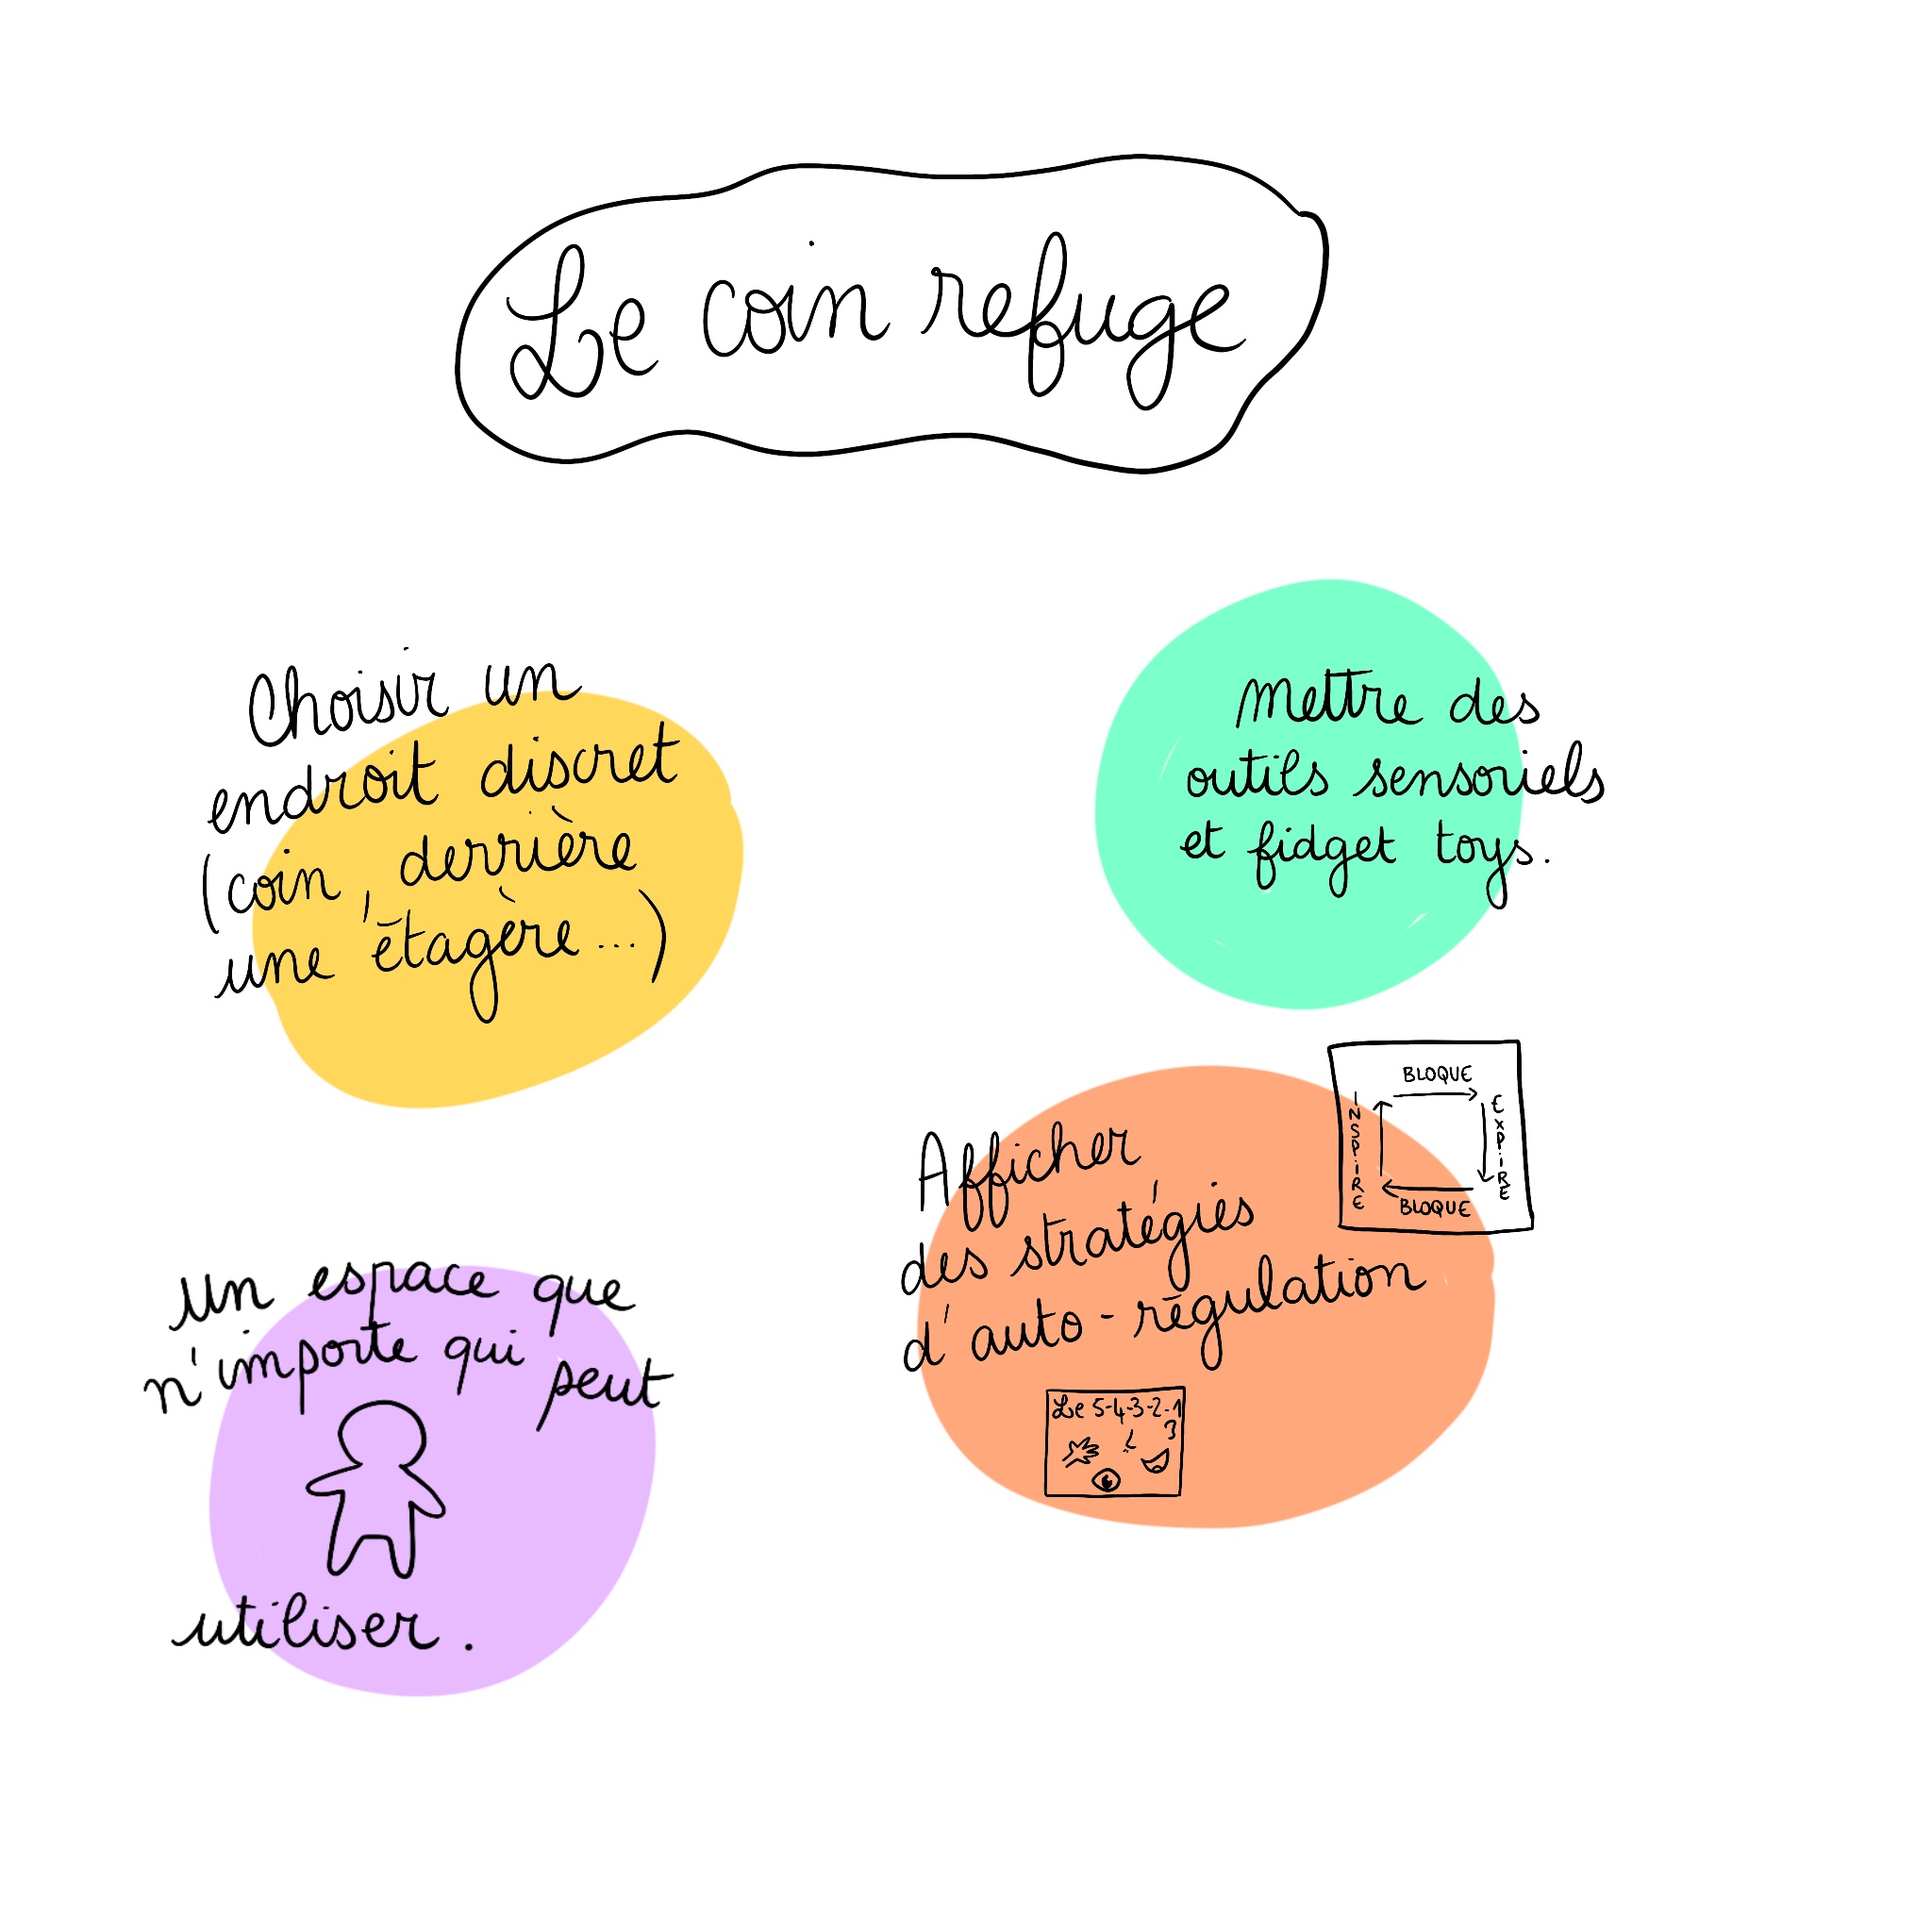 Le coin refuge
Choisir un
endroit discret
(coin, derrière
une étagère...)
Mettre des
outils sensoriels
et fidget toys.
Afficher
des stratégies
d'auto-régulation
BLOQUE
INSPIRE
EXPIRE
BLOQUE
Le 5-4-3-2-1
un espace que
n'importe qui peut
utiliser.